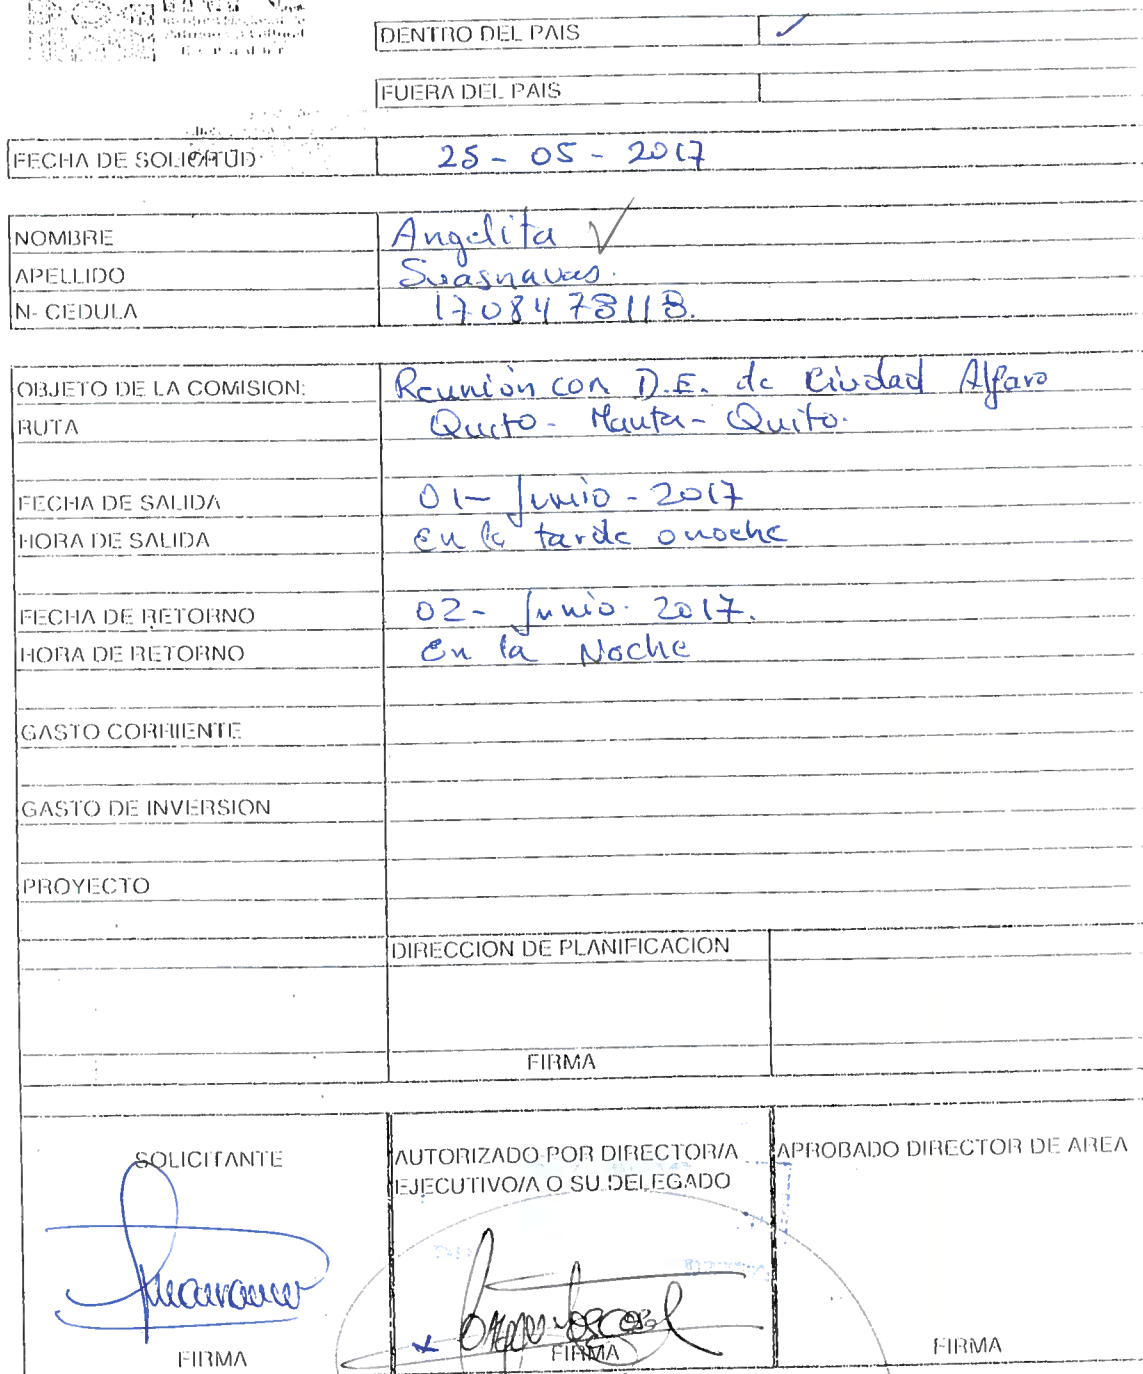 DENTRO DEL PAIS ✓
FUERA DEL PAIS
FECHA DE SOLICITUD: 25 - 05 - 2017
NOMBRE Angelita ✓
APELLIDO Suasnavas.
N- CEDULA 1708478118.
OBJETO DE LA COMISION: Reunión con D.E. de Ciudad Alfaro
RUTA Quito - Manta - Quito.
FECHA DE SALIDA 01 - Junio - 2017
HORA DE SALIDA En la tarde o noche
FECHA DE RETORNO 02 - Junio. 2017.
HORA DE RETORNO En la Noche
GASTO CORRIENTE
GASTO DE INVERSION
PROYECTO
DIRECCION DE PLANIFICACION
FIRMA
SOLICITANTE
AUTORIZADO POR DIRECTOR/A
EJECUTIVO/A O SU DELEGADO
APROBADO DIRECTOR DE AREA
FIRMA
FIRMA
FIRMA